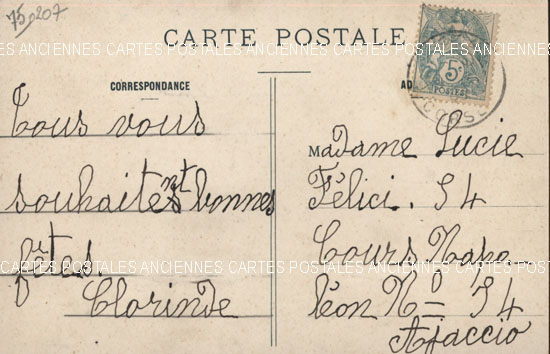 75p207
CARTE POSTALE
CARTES POSTALES ANCIENNES CARTES POSTALES ANCIENNES CARTES POSTALES
CORRESPONDANCE
5c
POSTES
CORSE
Tous vous
souhaitent bonnes
fêtes.
Clorinde
Madame Lucie
Félici. 54
Cours Napo
léon Nº = 54
Ajaccio
POSTALES ANCIENNES CARTES POSTALES ANCIENNES CARTES POSTALES ANCIENNES
CARTES POSTALES ANCIENNES CARTES POSTALES ANCIENNES CARTES POSTALES